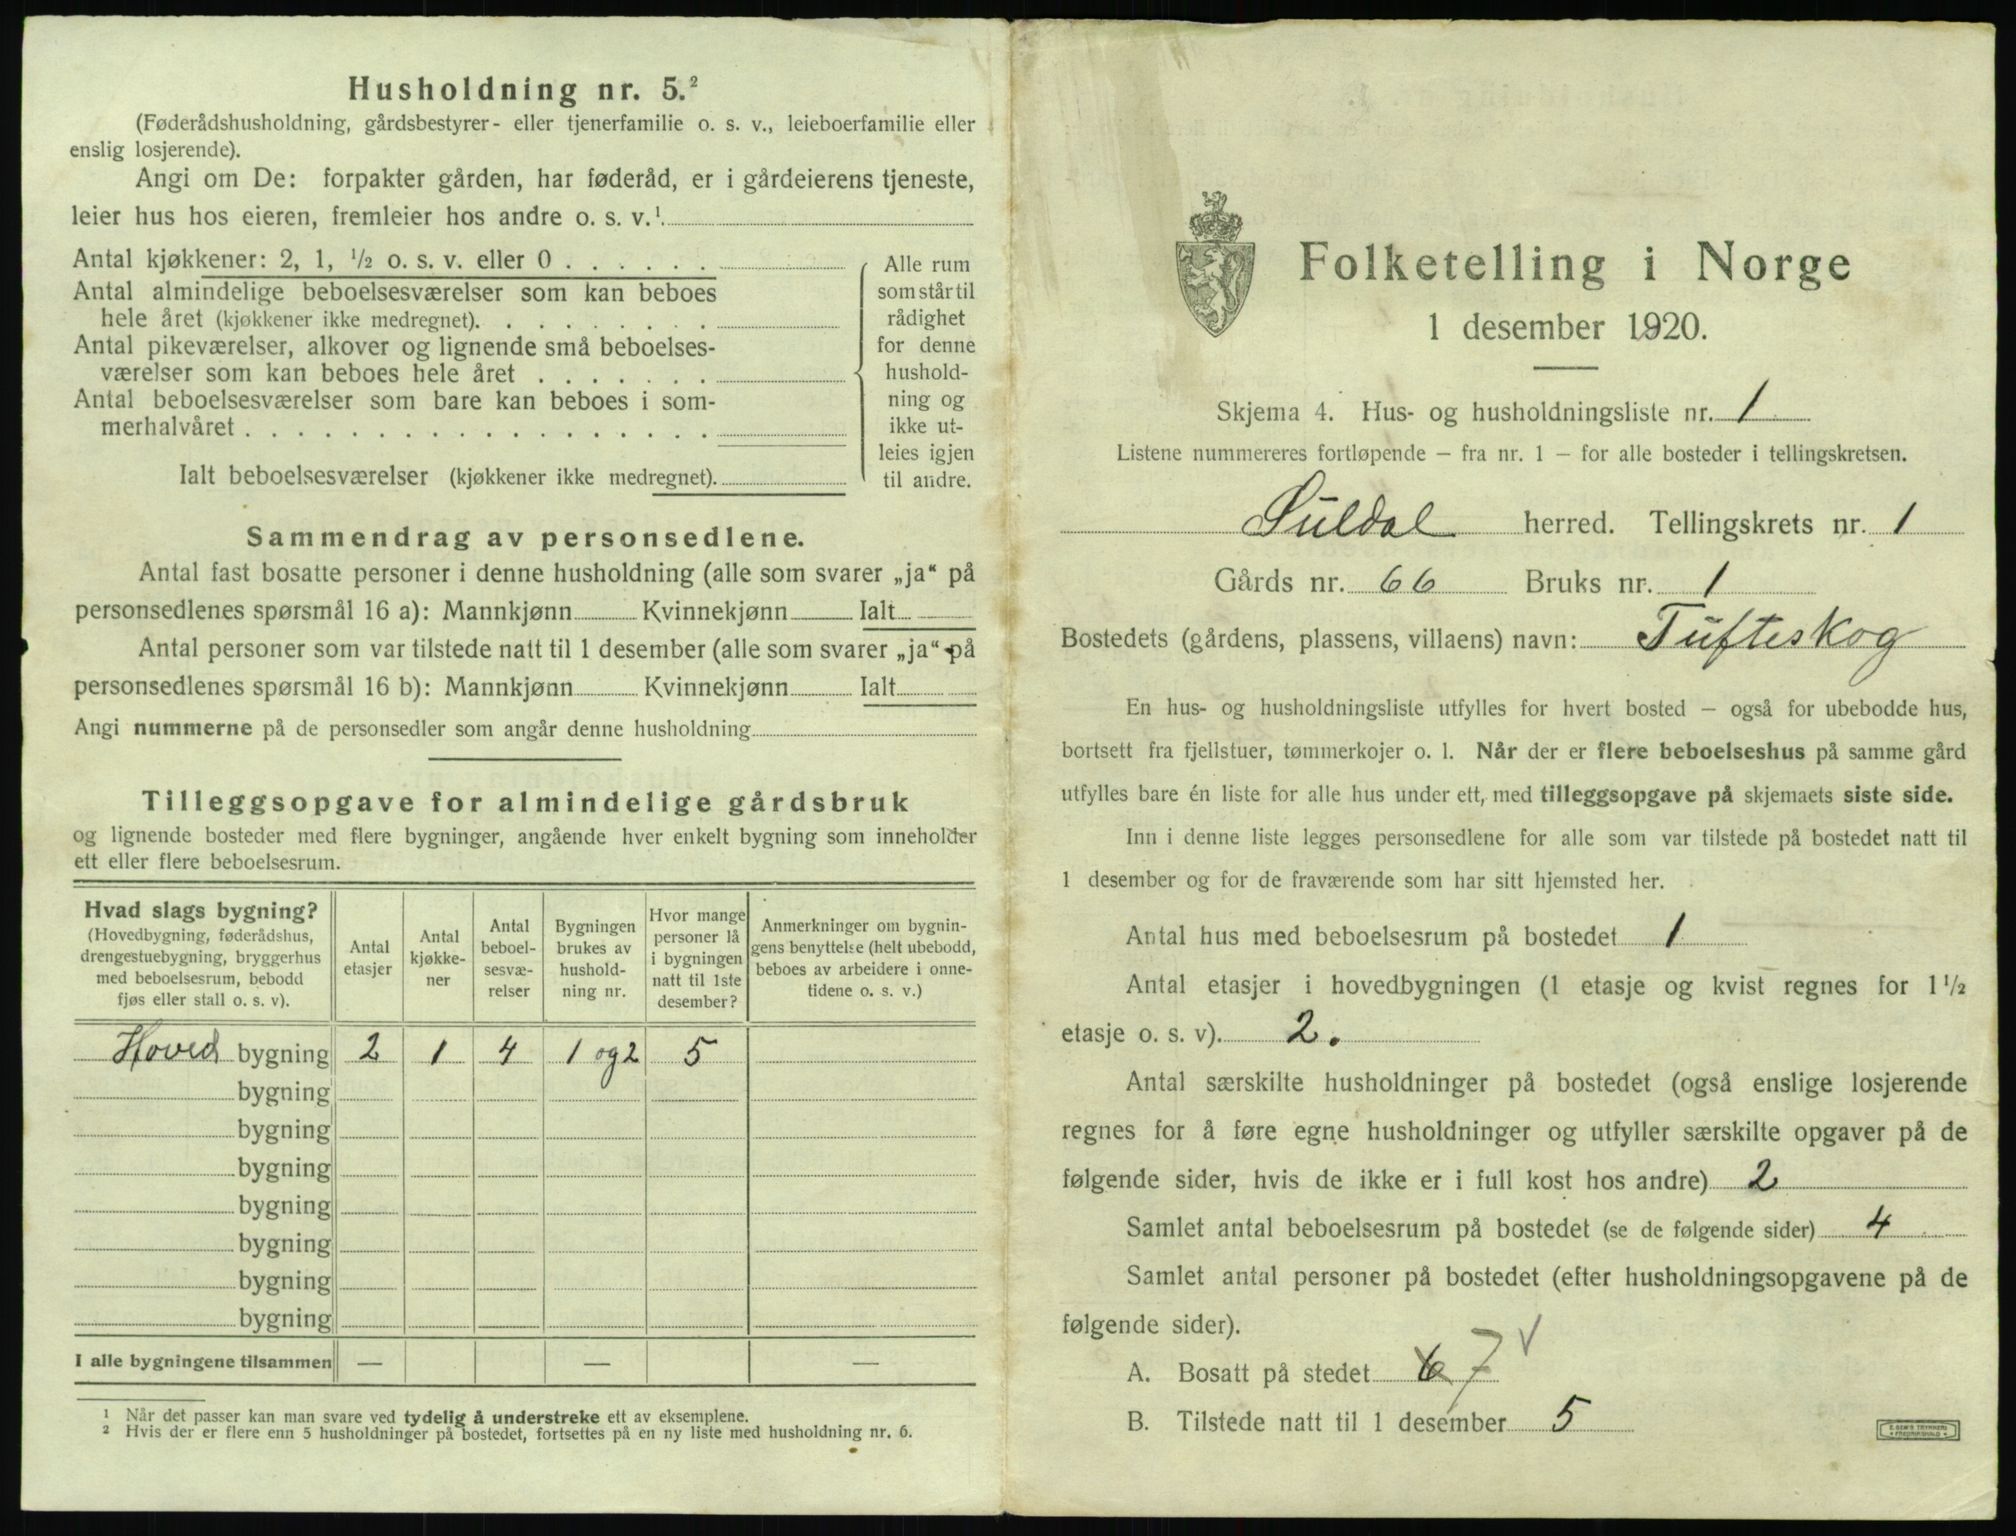 Husholdning nr. 5.²
(Føderådshusholdning, gårdsbestyrer- eller tjenerfamilie o. s. v., leieboerfamilie eller
enslig losjerende).
Angi om De: forpakter gården, har føderåd, er i gårdeierens tjeneste,
leier hus hos eieren, fremleier hos andre o. s. v.¹
Antal kjøkkener: 2, 1, ½ o. s. v. eller 0 . . . . . .
Antal almindelige beboelsesværelser som kan beboes
hele året (kjøkkener ikke medregnet). . . . . . . . .
Antal pikeværelser, alkover og lignende små beboelses-
værelser som kan beboes hele året . . . . . . .
Antal beboelsesværelser som bare kan beboes i som-
merhalvåret . . . . . . . . . . . . . . . . . .
Ialt beboelsesværelser (kjøkkener ikke medregnet).
Alle rum
som står til
rådighet
for denne
hushold-
ning og
ikke ut-
leies igjen
til andre.
Sammendrag av personsedlene.
Antal fast bosatte personer i denne husholdning (alle som svarer „ja“ på
personsedlenes spørsmål 16 a): Mannkjønn Kvinnekjønn Ialt
Antal personer som var tilstede natt til 1 desember (alle som svarer „ja“ på
personsedlenes spørsmål 16 b): Mannkjønn Kvinnekjønn Ialt
Angi nummerne på de personsedler som angår denne husholdning
Tilleggsopgave for almindelige gårdsbruk
og lignende bosteder med flere bygninger, angående hver enkelt bygning som inneholder
ett eller flere beboelsesrum.
Hvad slags bygning?
(Hovedbygning, føderådshus,
drengestuebygning, bryggerhus
med beboelsesrum, bebodd
fjøs eller stall o. s. v).
Antal
etasjer
Antal
kjøkke-
ner
Antal
beboel-
sesvæ-
relser
Bygningen
brukes av
hushold-
ning nr.
Hvor mange
personer lå
i bygningen
natt til 1ste
desember?
Anmerkninger om bygnin-
gens benyttelse (helt ubebodd,
beboes av arbeidere i onne-
tidene o. s. v.)
Hoved bygning 2 1 4 1 og 2 5
bygning
bygning
bygning
bygning
bygning
bygning
bygning
I alle bygningene tilsammen — — —
¹ Når det passer kan man svare ved tydelig å understreke ett av eksemplene.
² Hvis der er flere enn 5 husholdninger på bostedet, fortsettes på en ny liste med husholdning nr. 6.
Folketelling i Norge
1 desember 1920.
Skjema 4. Hus- og husholdningsliste nr. 1
Listene nummereres fortløpende – fra nr. 1 – for alle bosteder i tellingskretsen.
Suldal herred. Tellingskrets nr. 1
Gårds nr. 66 Bruks nr. 1
Bostedets (gårdens, plassens, villaens) navn: Tufteskog
En hus- og husholdningsliste utfylles for hvert bosted – også for ubebodde hus,
bortsett fra fjellstuer, tømmerkojer o. l. Når der er flere beboelseshus på samme gård
utfylles bare én liste for alle hus under ett, med tilleggsopgave på skjemaets siste side.
Inn i denne liste legges personsedlene for alle som var tilstede på bostedet natt til
1 desember og for de fraværende som har sitt hjemsted her.
Antal hus med beboelsesrum på bostedet 1
Antal etasjer i hovedbygningen (1 etasje og kvist regnes for 1½
etasje o. s. v). 2.
Antal særskilte husholdninger på bostedet (også enslige losjerende
regnes for å føre egne husholdninger og utfyller særskilte opgaver på de
følgende sider, hvis de ikke er i full kost hos andre) 2
Samlet antal beboelsesrum på bostedet (se de følgende sider) 4
Samlet antal personer på bostedet (efter husholdningsopgavene på de
følgende sider).
A. Bosatt på stedet 6 7 √
B. Tilstede natt til 1 desember 5